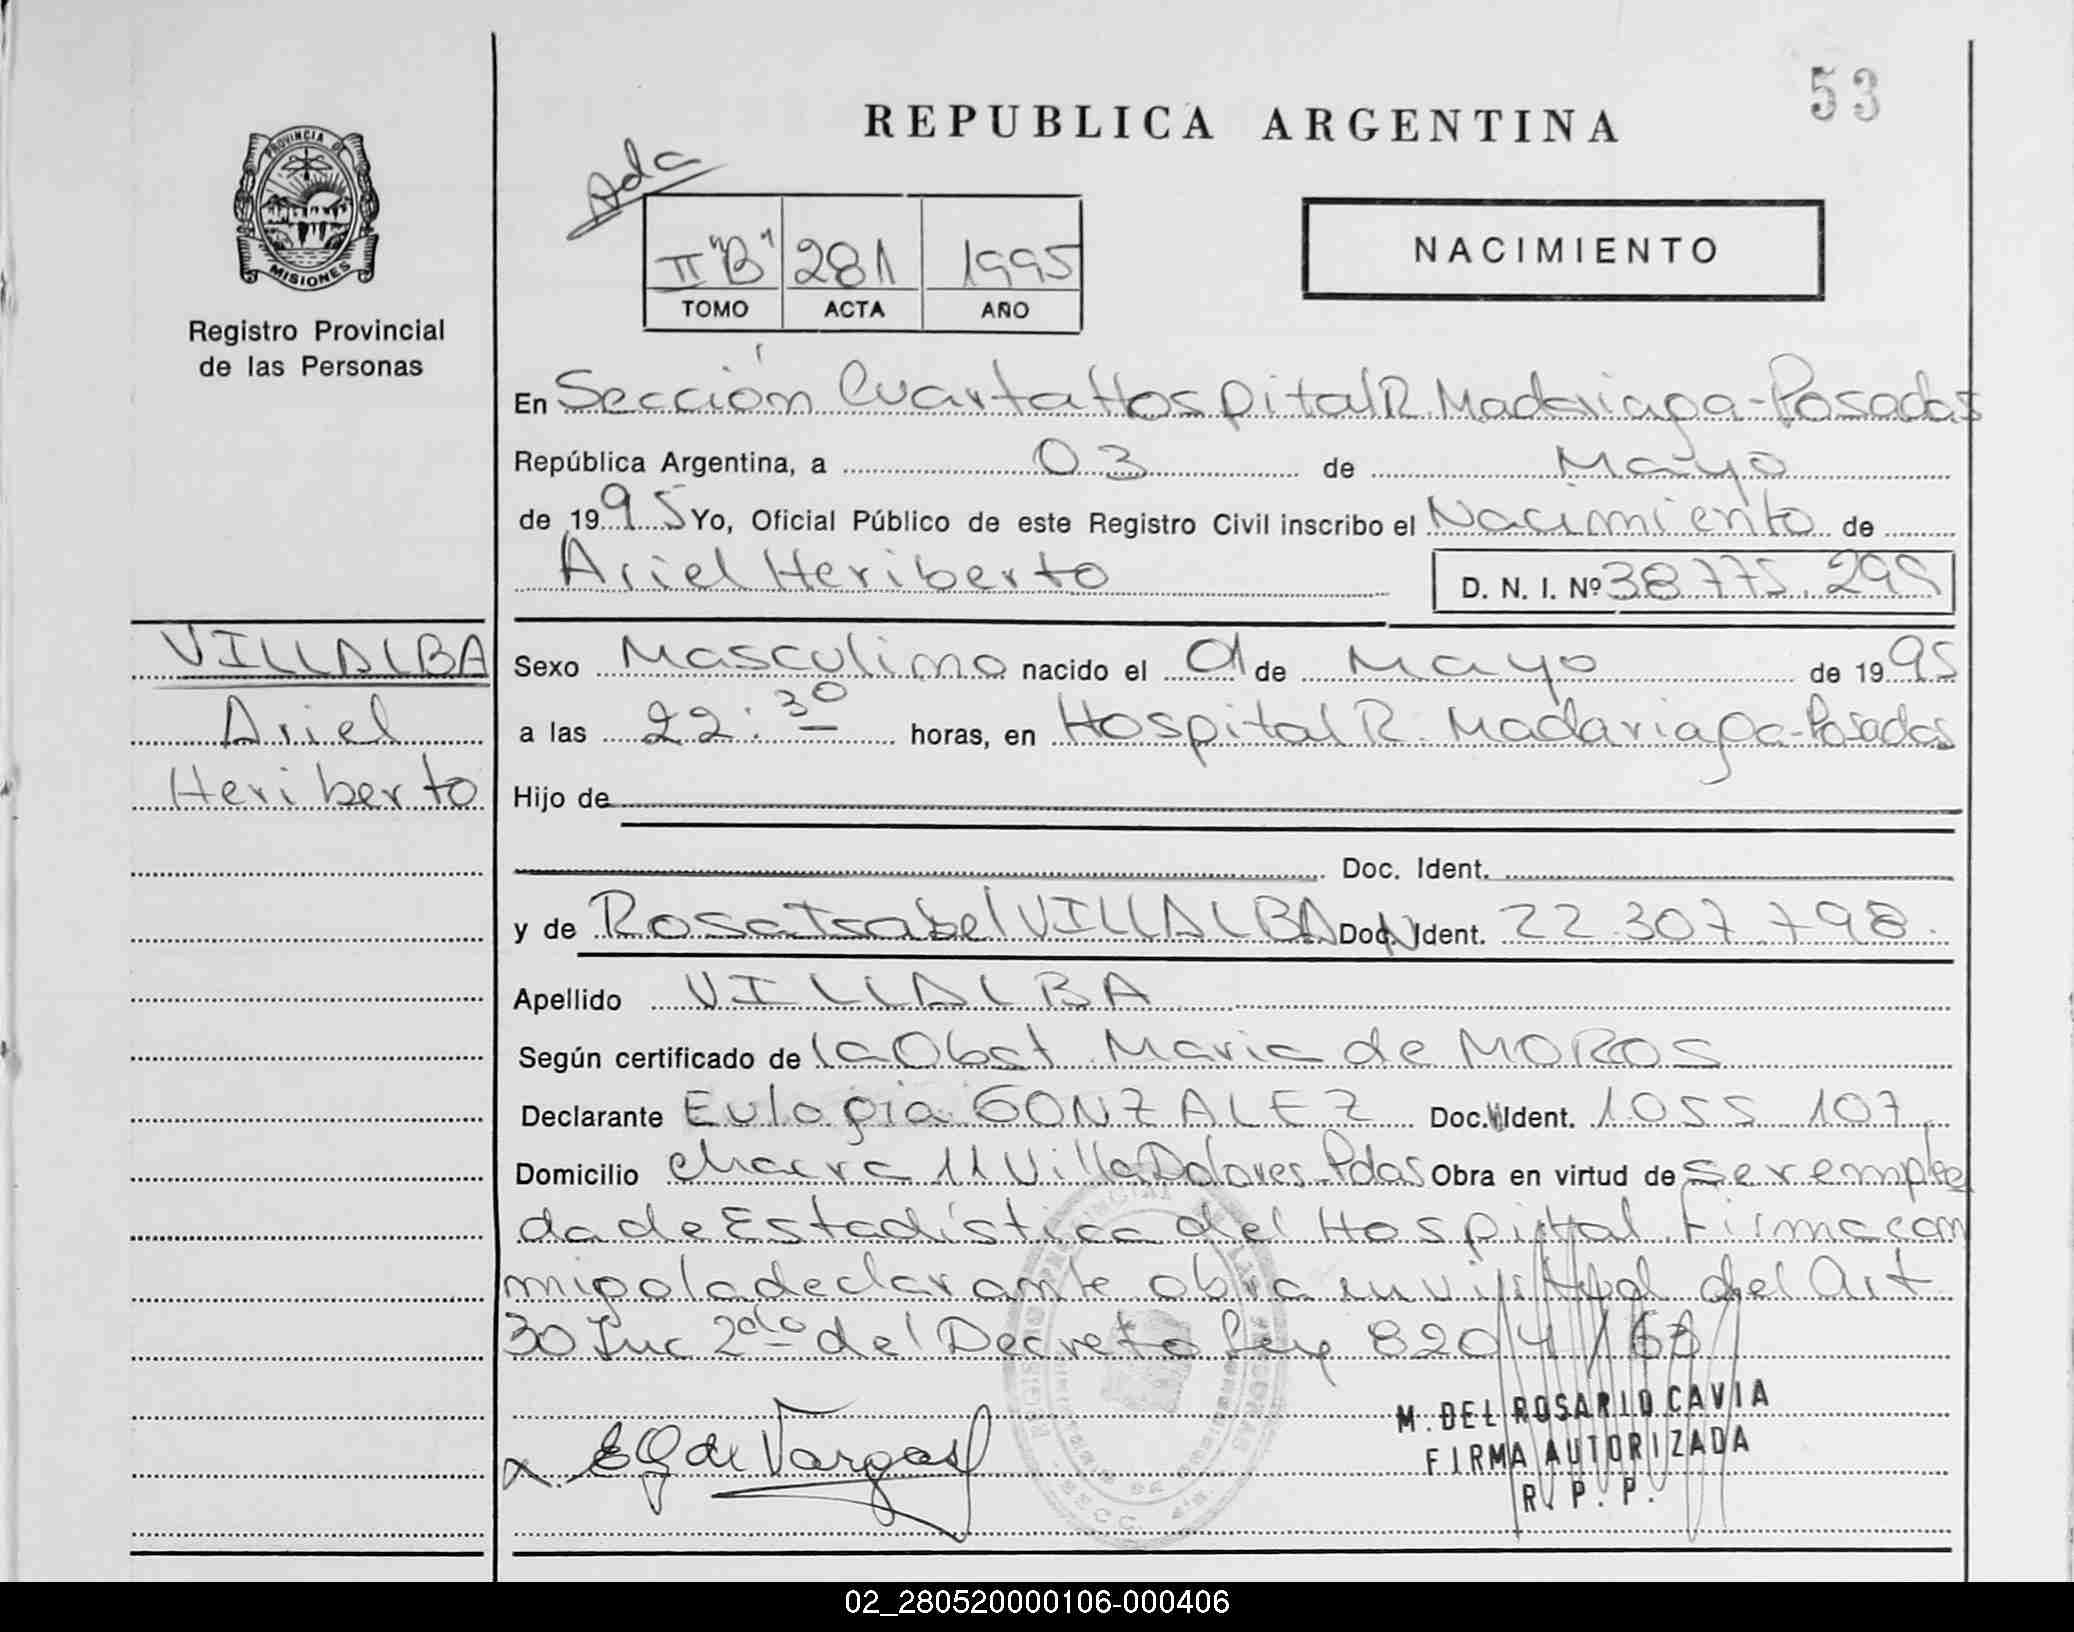 53
REPUBLICA ARGENTINA
PROVINCIA DE
MISIONES
Registro Provincial
de las Personas
Ada
II "B" 281 1995
TOMO ACTA AÑO
NACIMIENTO
En Sección Cuarta Hospital R. Madariaga - Posadas
República Argentina, a 03 de Mayo
de 1995 Yo, Oficial Público de este Registro Civil inscribo el Nacimiento de
Ariel Heriberto D. N. I. Nº 38.775.295
VILLALBA
Ariel
Heriberto
Sexo Masculino nacido el 01 de Mayo de 1995
a las 22:30 horas, en Hospital R. Madariaga - Posadas
Hijo de
Doc. Ident.
y de Rosa Isabel VILLALBA DNI Doc. Ident. 22.307.798.
Apellido VILLALBA
Según certificado de la Obst. Maria de MOROS
Declarante Eulogia GONZALEZ Doc. Ident. 1.055.107
Domicilio chacra 11 Villa Dolores. Pdas Obra en virtud de ser emplea
da de Estadística del Hospital. Firma con
migo la declarante obra en virtud del Art
30 Inc 2do del Decreto Ley 8204/63
E G de Vargas
M. DEL ROSARIO CAVIA
FIRMA AUTORIZADA
R. P. P.
02_280520000106-000406